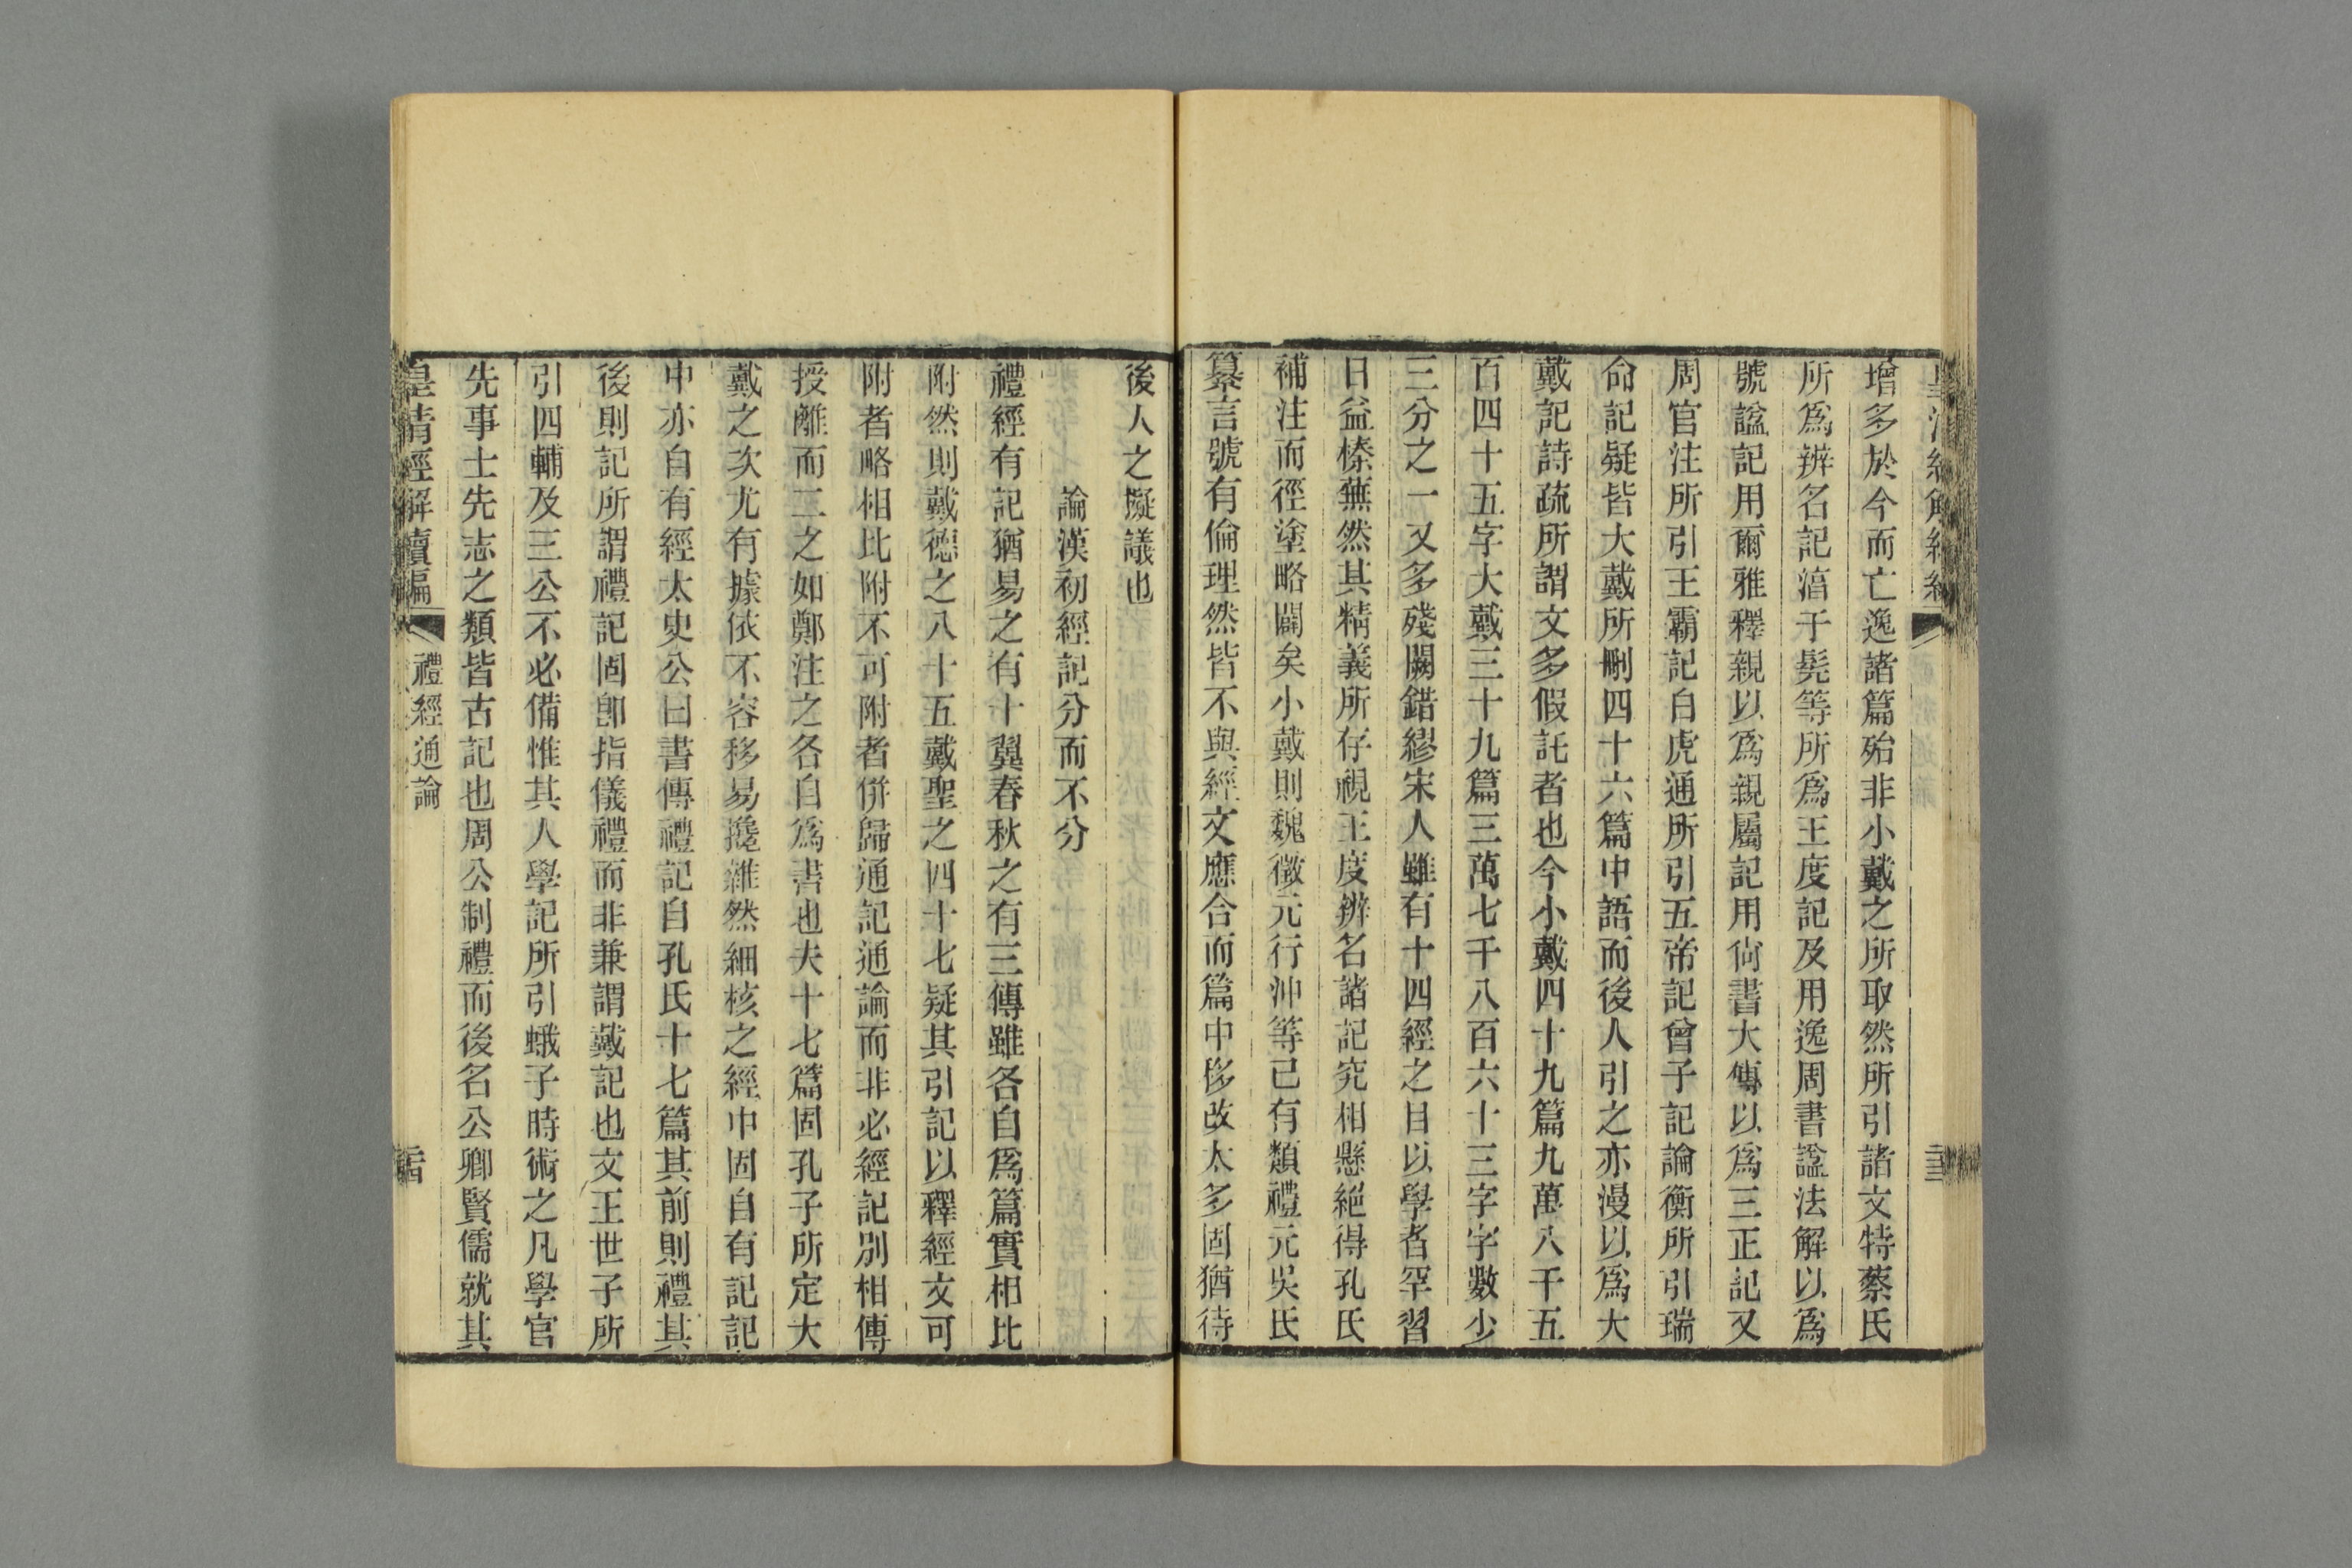 增多於今而亡逸諸篇殆非小戴之所取然所引諸文特蔡氏
所爲辨名記湻于髡等所爲王度記及用逸周書諡法解以爲
號諡記用爾雅釋親以爲親屬記用尙書大傳以爲三正記又
周官注所引王霸記白虎通所引五帝記曾子記論衡所引瑞
命記疑皆大戴所刪四十六篇中語而後人引之亦漫以爲大
戴記詩疏所謂文多假託者也今小戴四十九篇九萬八千五
百四十五字大戴三十九篇三萬七千八百六十三字字數少
三分之一又多殘闕錯繆宋人雖有十四經之目以學者罕習
日益榛蕪然其精義所存視王度辨名諸記究相懸絕得孔氏
補注而徑塗略闢矣小戴則魏徵元行沖等已有類禮元吳氏
纂言號有倫理然皆不與經文應合而篇中移改太多固猶待
後人之擬議也
論漢初經記分而不分
禮經有記猶易之有十翼春秋之有三傳雖各自爲篇實相比
附然則戴德之八十五戴聖之四十七疑其引記以釋經文可
附者略相比附不可附者併歸通記通論而非必經記別相傳
授離而二之如鄭注之各自爲書也夫十七篇固孔子所定大
戴之次尤有據依不容移易攙雜然細核之經中固自有記記
中亦自有經太史公曰書傳禮記自孔氏十七篇其前則禮其
後則記所謂禮記固卽指儀禮而非兼謂戴記也文王世子所
引四輔及三公不必備惟其人學記所引蛾子時術之凡學官
先事士先志之類皆古記也周公制禮而後名公卿賢儒就其
皇清經解續編 禮經通論